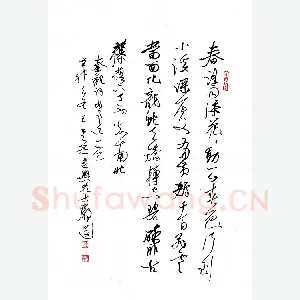 春路雨添花動一山春色行到
小溪深處有黃鸝千百飛雲
當面化龍蛇夭矯轉空碧醉臥古
藤陰下了不知南北
秦觀詞好事近
Shufawang.CN